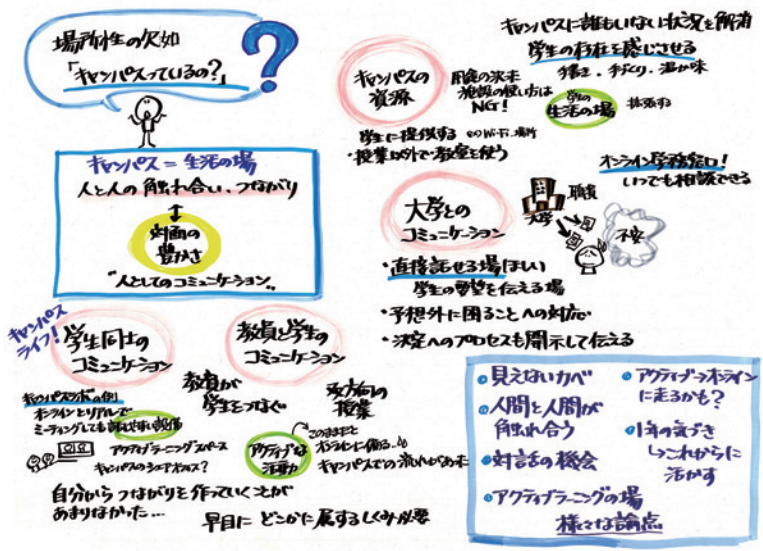 場所性の欠如
「キャンパスっているの?」
?
キャンパス=生活の場
人と人の触れ合い、つながり
対面の
豊かさ
"人としてのコミュニケーション"
キャンパス
ライフ!
学生同士の
コミュニケーション
オンラインとリアルで
ミーティングしても
アクティブラーニングスペース
キャンパスのシェアオフィス?
自分からつながりを作っていくことが
あまりなかった…
教員と学生の
コミュニケーション
教員が
学生をつなぐ
双方向の
授業
アクティブな
活動
このままだと
オンラインに偏る
キャンパスでの流れがあった
早目にどこかに属するしくみ必要
キャンパスに誰もいない状況を解消
学生の存在を感じさせる
手書き・手づくり・温か味
キャンパスの
資源
用途の決まった
施設の使い方は
NG!
学生の
生活の場
拡張する
学生に提供する ex)Wi-Fi、場所
・授業以外で教室を使う
オンライン学務窓口!
いつでも相談できる
大学との
コミュニケーション
職員
大学
不安
・直接話せる場ほしい
学生の要望を伝える場
・予想外に困ることへの対応
・決定へのプロセスも開示して伝える
・見えないカベ
・人間と人間が
触れ合う
・対話の機会
・アクティブラーニングの場
様々な論点
・アクティブ→オンライン
に走るかも?
・1年の気づき
↳これからに
活かす